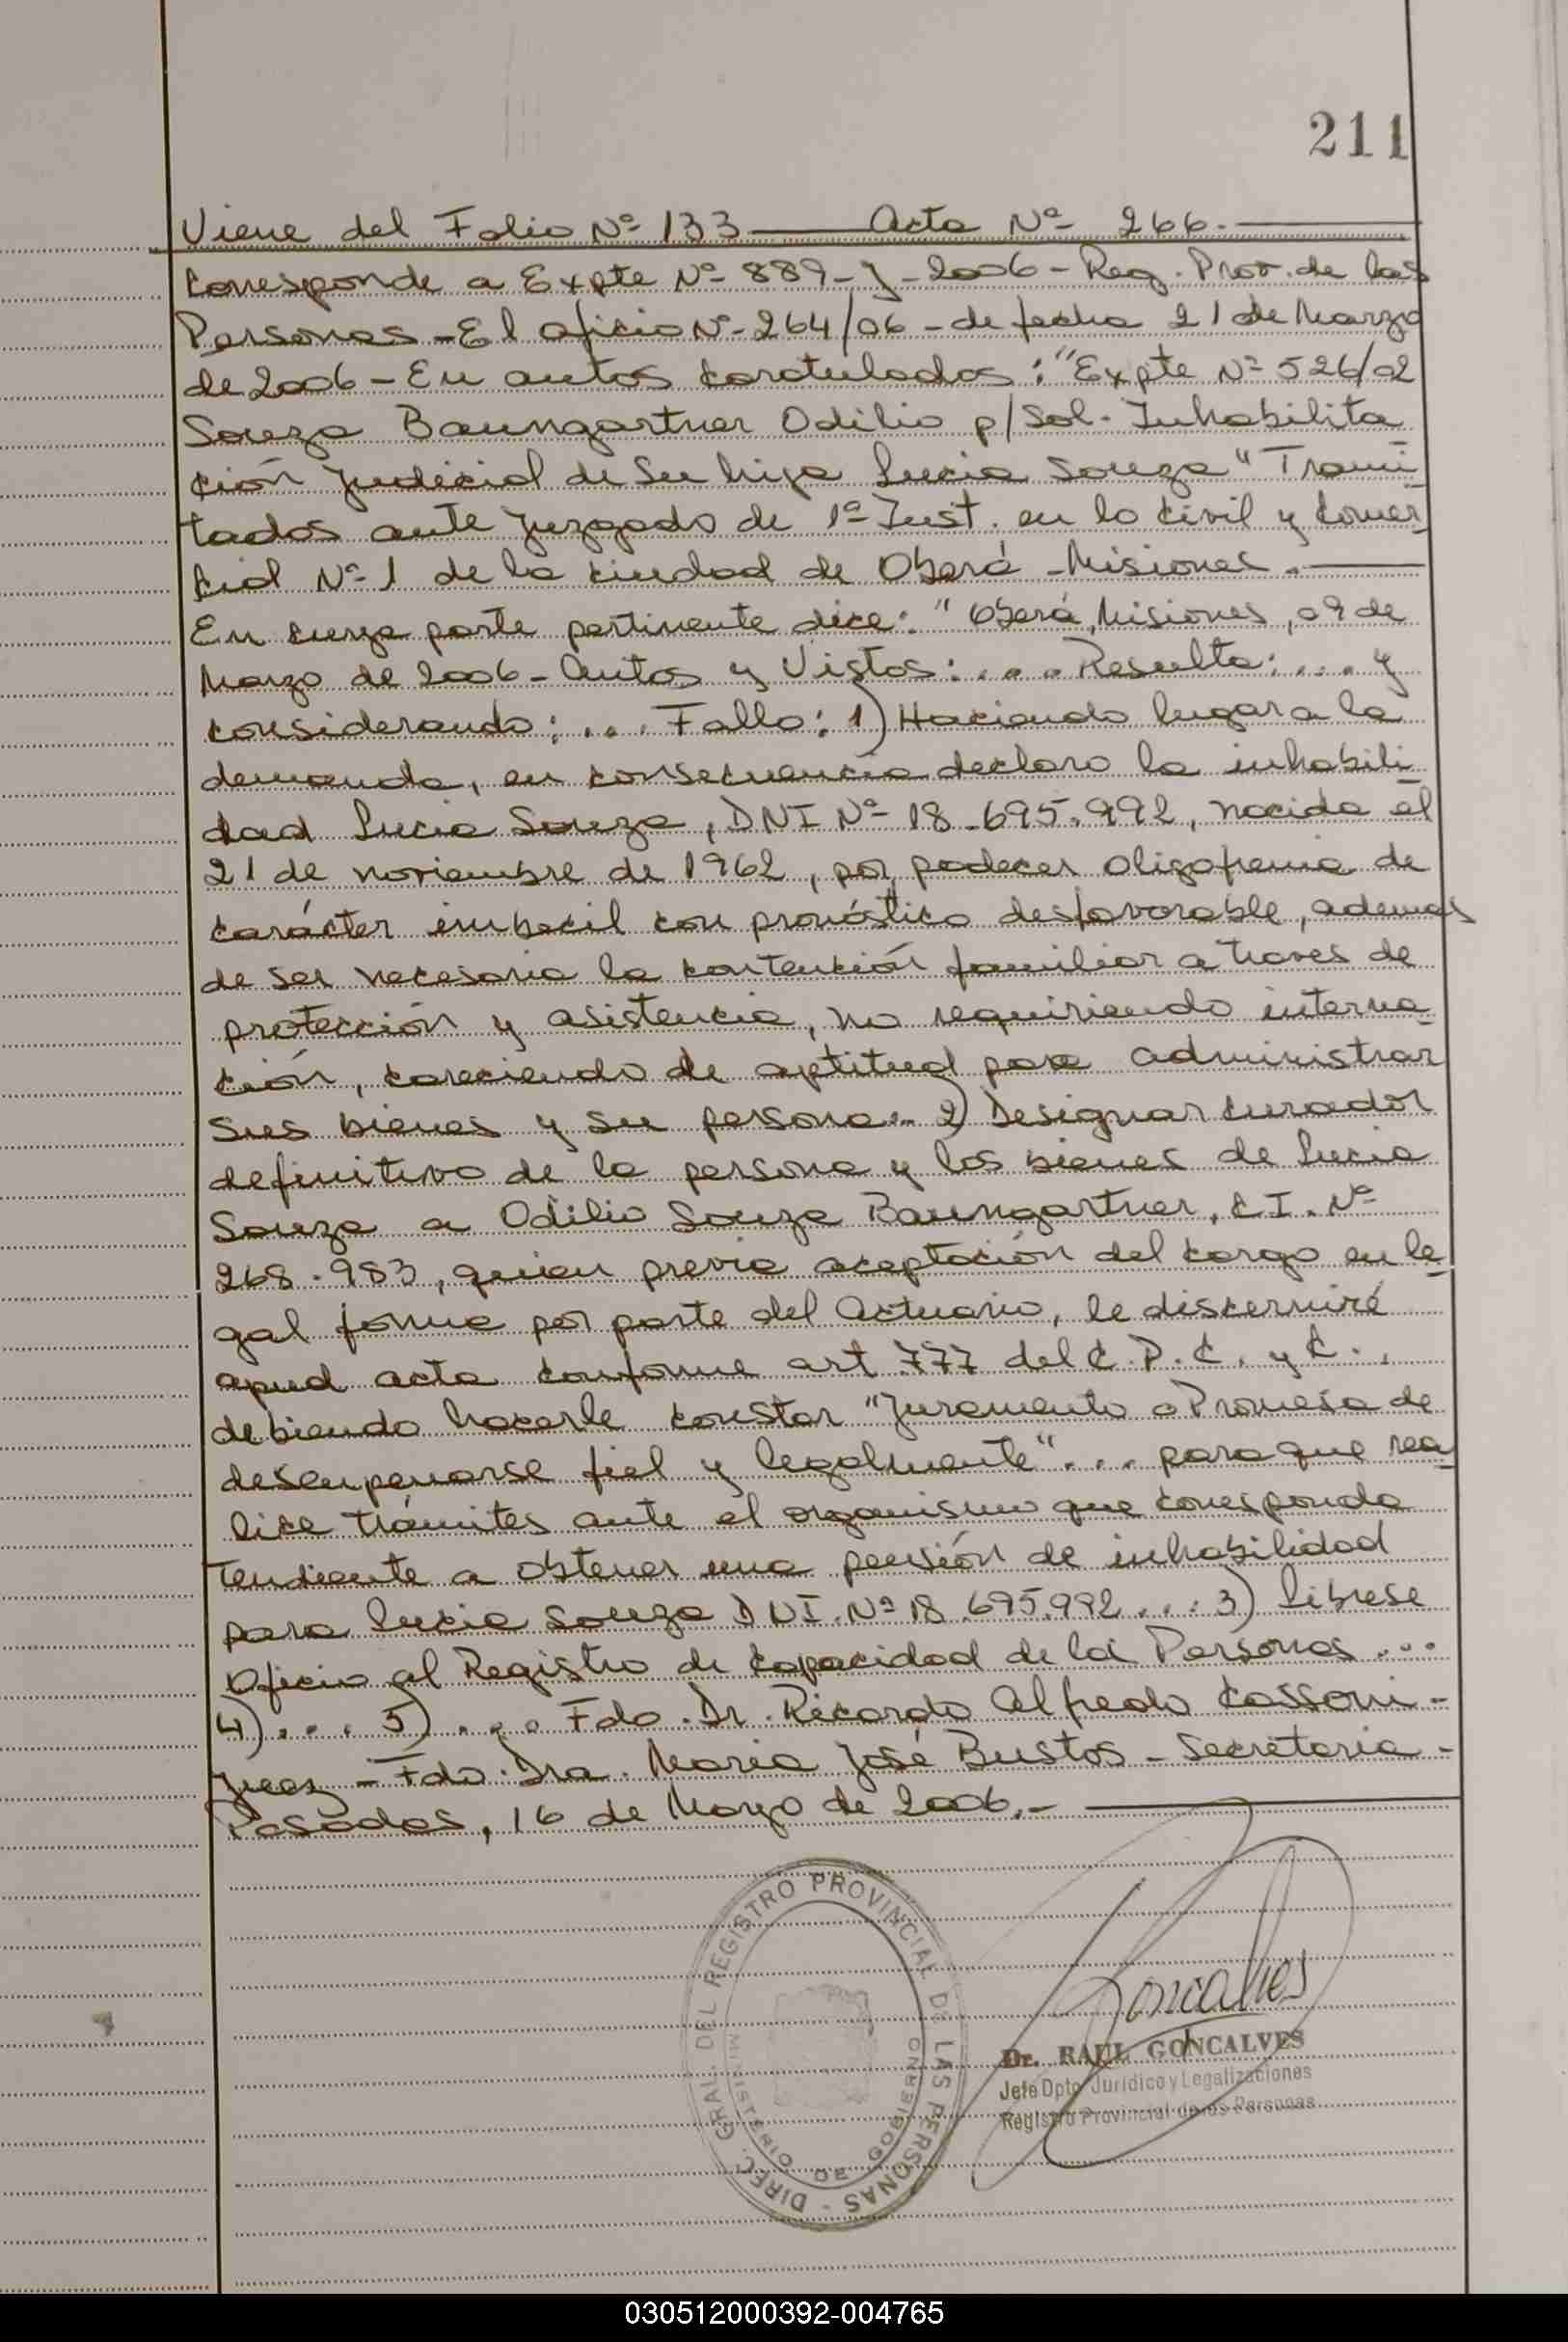 211
Viene del Folio Nº 133 — Acta Nº 266.—
Corresponde a Expte Nº 889-J-2006 - Reg. Prov. de las
Personas - El oficio Nº 264/06 - de fecha 21 de Marzo
de 2006 - En autos caratulados: "Expte Nº 526/02
Souza Baumgartner Odilio p/ Sol. Inhabilita-
ción Judicial de Su hija Lucia Souza" Trami-
tados ante Juzgado de 1ª Inst. en lo Civil y Comer-
cial Nº 1 de la ciudad de Oberá - Misiones.—
En cuya parte pertinente dice: "Oberá, Misiones, 09 de
Marzo de 2006 - Autos y Vistos: .... Resulta: .... y
considerando: .... Fallo: 1) Haciendo lugar a la
demanda, en consecuencia declaro la inhabili-
dad Lucia Souza, DNI Nº 18.695.992, nacida el
21 de noviembre de 1962, por padecer oligofrenia de
carácter imbecil con pronóstico desfavorable, ademas
de ser necesaria la contención familiar a traves de
protección y asistencia, no requiriendo interna-
ción, careciendo de aptitud para administrar
sus bienes y su persona.. 2) Designar curador
definitivo de la persona y los bienes de Lucia
Souza a Odilio Souza Baumgartner, C.I. Nº
268.983, quien previa aceptación del cargo en le-
gal forma por parte del Actuario, le discerniré
apud acta conforme art 777 del C.P.C. y C..
debiendo hacerle constar "Juramento o Promesa de
desempenarse fiel y legalmente" ... para que rea-
lice trámites ante el organismo que corresponda
tendiente a obtener una pensión de inhabilidad
para Lucia Souza DNI. Nº 18.695.992 ... 3) Librese
Oficio al Registro de Capacidad de las Personas ...
4) .... 5) .... Fdo. Dr. Ricardo Alfredo Cassoni -
Juez - Fdo. Dra. Maria José Bustos - Secretaria -
Posadas, 16 de Mayo de 2006.-—
DIREC. GRAL. DEL REGISTRO PROVINCIAL DE LAS PERSONAS -
MINISTERIO DE GOBIERNO
Goncalves
Dr. RAUL GONCALVES
Jefe Dpto. Jurídico y Legalizaciones
Registro Provincial de las Personas
030512000392-004765